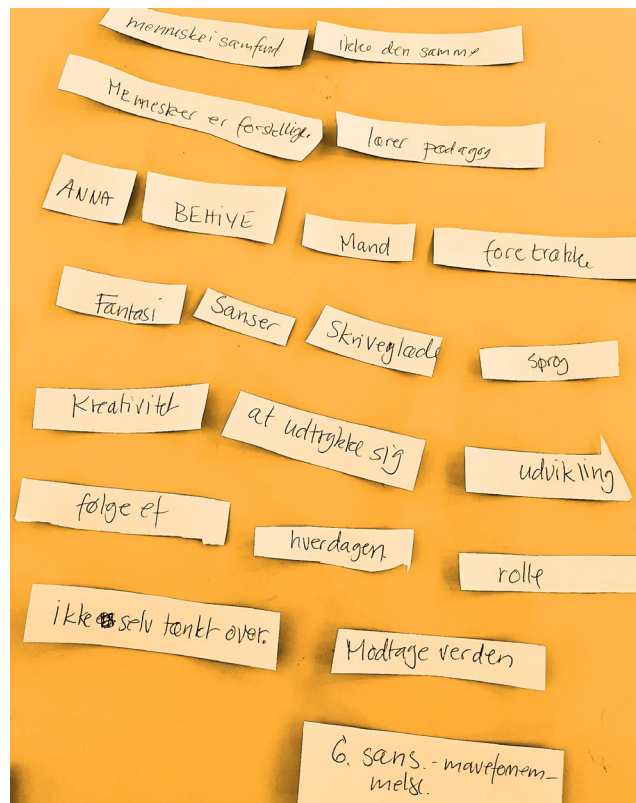 menneske i samfund
ikke den samme
Mennesker er forskellige.
lærer pædagog
ANNA
BEHIYE
Mand
foretrække
Fantasi
Sanser
Skriveglæde
sprog
Kreativitet
at udtrykke sig
udvikling
følge et
hverdagen
rolle
ikke selv tænkt over.
Modtage verden
6. sans. - mavefornem-
melse.